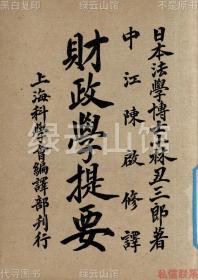 黑白复印
不是原书
日本法學博士小林丑三郎著
中江陳啟修譯
財政學提要
上海科學會編譯部刊行
绿云山馆
代寻图书
私信联系